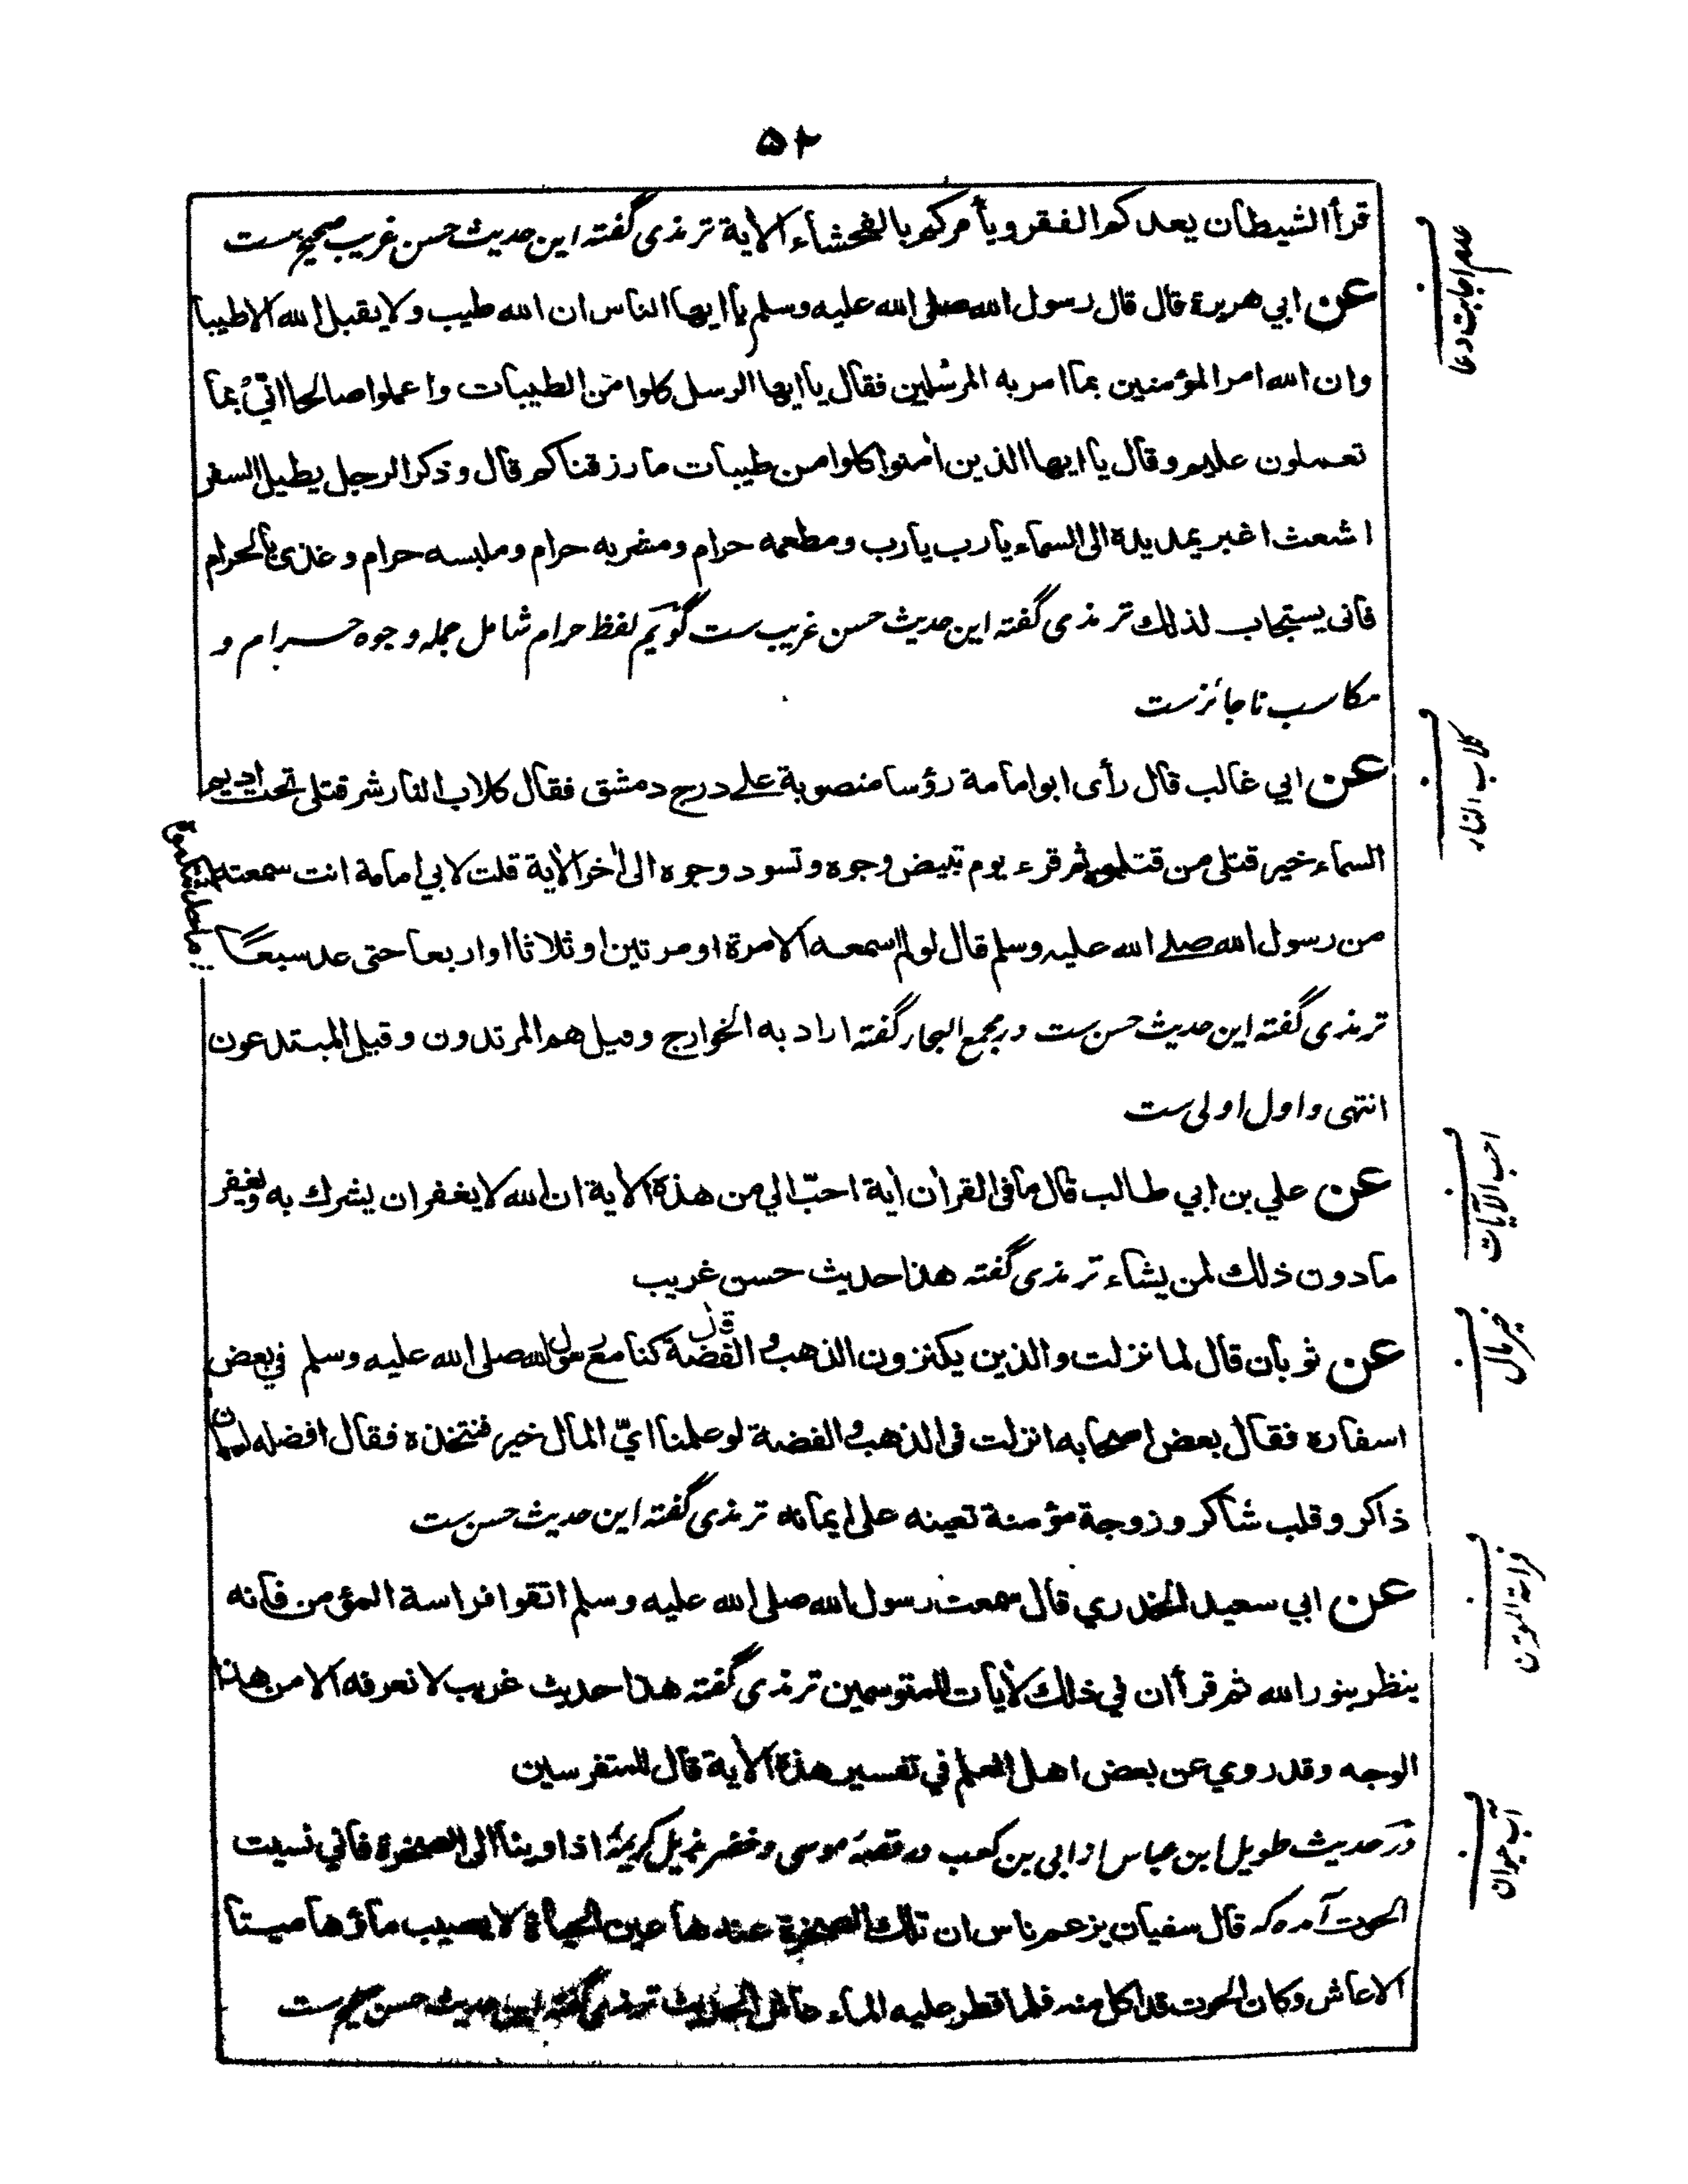 ۵۲
قرأ الشيطان يعدكم الفقر ويأمركم بالفحشاء الآية ترمذی گفته این حدیث حسن غریب صحیح ست
عدم اجابت دعا
عن ابي هريرة قال قال رسول الله صلى الله عليه وسلم يا ايها الناس ان الله طيب ولا يقبل الله الا طيبا
وان الله امر المؤمنين بما امر به المرسلين فقال يا ايها الرسل كلوا من الطيبات واعملوا صالحا اني بما
تعملون عليم وقال يا ايها الذين اٰمنوا كلوا من طيبات ما رزقناكم قال وذكر الرجل يطيل السفر
اشعث اغبر يمد يده الى السماء يا رب يا رب ومطعمه حرام ومشربه حرام وملبسه حرام وغذي بالحرام
فانى يستجاب لذلك ترمذی گفته این حدیث حسن غریب ست گویم لفظ حرام شامل جمله وجوه حرام و
مکاسب ناجائز ست
کلاب النار
عن ابي غالب قال رأى ابو امامة رؤسا منصوبة على درج دمشق فقال كلاب النار شر قتلى تحت اديم
السماء خير قتلى من قتلوه ثم قرء يوم تبيض وجوه وتسود وجوه الى اٰخر الاٰية قلت لابي امامة انت سمعته
من رسول الله صلى الله عليه وسلم قال لو لم اسمعه الا مرة او مرتين او ثلاثا او اربعا حتى عد سبعًا
ما حدثتكموه
ترمذی گفته این حدیث حسن ست در مجمع البحار گفته اراد به الخوارج وقيل هم المرتدون وقيل المبتدعون
انتهى و اول اولی ست
احب الآیات
عن علي بن ابي طالب قال ما في القراٰن اٰية احبّ الي من هذه الاٰية ان الله لا يغفر ان يشرك به ويغفر
ما دون ذلك لمن يشاء ترمذی گفته هذا حديث حسن غريب
خیر مال
عن ثوبان قال لما نزلت والذين يكنزون الذهب والفضة قال كنا مع رسول الله صلى الله عليه وسلم في بعض
اسفاره فقال بعض اصحابه انزلت في الذهب والفضة لو علمنا ايّ المال خير فنتخذه فقال افضله لسان
ذاكر وقلب شاكر وزوجة مؤمنة تعينه على ايمانه ترمذی گفته این حدیث حسن ست
فراسة المؤمن
عن ابي سعيد الخدري قال سمعت رسول الله صلى الله عليه وسلم اتقوا فراسة المؤمن فانه
ينظر بنور الله ثم قرأ ان في ذلك لاٰيات للمتوسمين ترمذی گفته هذا حديث غريب لا نعرفه الا من هذا
الوجه وقد روي عن بعض اهل العلم في تفسير هذه الاٰية قال للمتفرسين
آب حیوان
در حدیث طویل ابن عباس از ابی بن کعب در قصهٔ موسی و خضر بذیل کریمهٔ اذ اوينا الى الصخرة فاني نسيت
الحوت آمده که قال سفيان يزعم ناس ان تلك الصخرة عندها عين الحياة لا يصيب ماؤها ميتا
الا عاش وكان الحوت قد اكل منه فلما قطر عليه الماء عاش الحديث ترمذی گفته این حدیث حسن صحیح ست